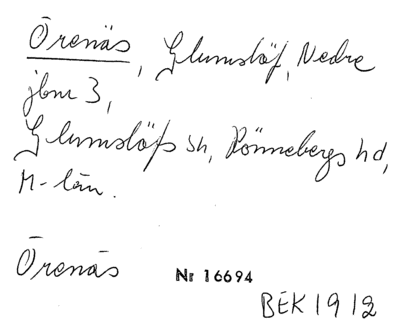 Örenäs, Glumslöf, Nedre
jbnr 3,
Glumslöfs sn, Rönnebergs hd,
M-län.
Örenäs
Nr 16694
BEK 1912